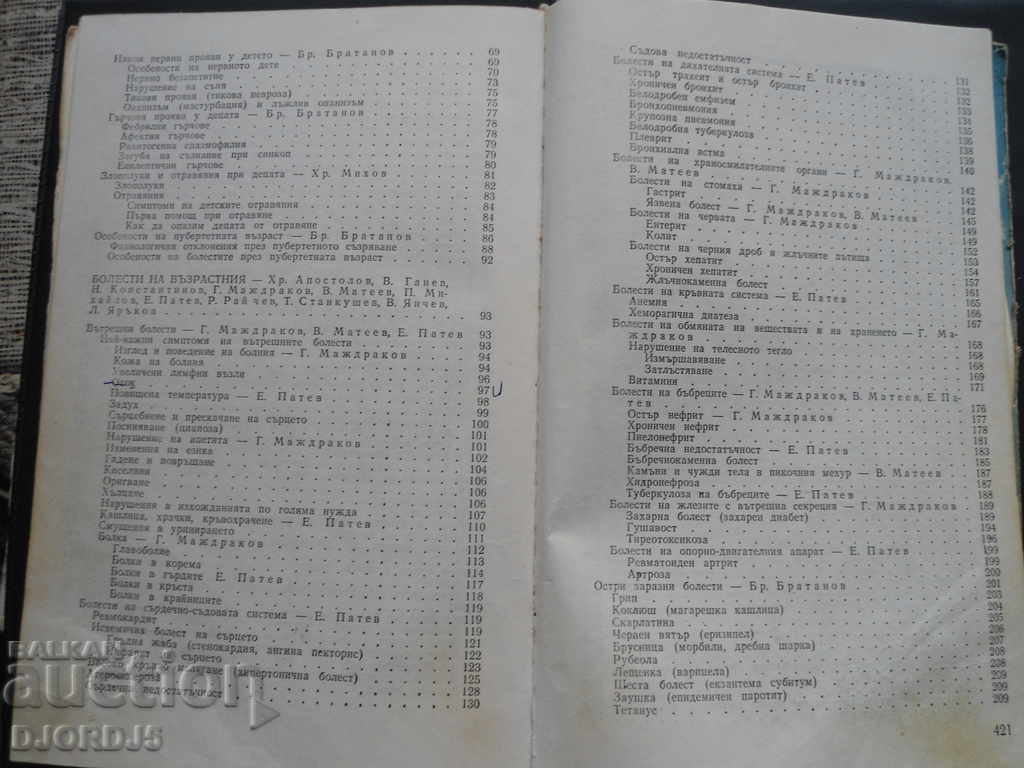 Някои нервни прояви у детето — Бр. Братанов 69
Особености на нервното дете 69
Нервно безапетитие 70
Нарушение на съня 73
Тикови прояви (тикова невроза) 75
Онанизъм (мастурбация) и лъжлив онанизъм 75
Гърчови прояви у децата — Бр. Братанов 77
Фебрилни гърчове 78
Афектни гърчове 78
Рахитогенна спазмофилия 79
Загуба на съзнание при синкоп 79
Епилептични гърчове 80
Злополуки и отравяния при децата — Хр. Михов 81
Злополуки 82
Отравяния 83
Симптоми на детските отравяния 84
Първа помощ при отравяне 84
Как да опазим децата от отравяне 85
Особености на пубертетната възраст — Бр. Братанов 86
Физиологични отклонения през пубертетното съзряване 88
Особености на болестите през пубертетната възраст 92
БОЛЕСТИ НА ВЪЗРАСТНИЯ — Хр. Апостолов, В. Ганев,
Н. Константинов, Г. Маждраков, В. Матеев, П. Ми-
хайлов, Е. Патев, Р. Райчев, Т. Станкушев, В. Янчев,
Л. Яръков 93
Вътрешни болести — Г. Маждраков, В. Матеев, Е. Патев 93
Най-важни симптоми на вътрешните болести 93
Изглед и поведение на болния — Г. Маждраков 94
Кожа на болния 94
Увеличени лимфни възли 96
Оток 97
Повишена температура — Е. Патев 98
Задух 99
Сърцебиене и прескачане на сърцето 100
Посиняване (цианоза) 101
Нарушение на апетита — Г. Маждраков 101
Изменения на езика 102
Гадене и повръщане 104
Киселини 106
Оригване 106
Хълцане 106
Нарушения в изхожданията по голяма нужда 107
Кашлица, храчки, кръвохрачене — Е. Патев 110
Смущения в уринирането 111
Болка — Г. Маждраков 112
Главоболие 113
Болки в корема 114
Болки в гърдите Е. Патев 117
Болки в кръста 118
Болки в крайниците 119
Болести на сърдечно-съдовата система — Е. Патев 119
Ревмокардит 121
Исхемична болест на сърцето 122
жаба (стенокардия, ангина пекторис) 123
на сърцето 125
налягане (хипертонична болест) 128
Сърдечна недостатъчност 130
Съдова недостатъчност 131
Болести на дихателната система — Е. Патев 132
Остър трахеит и остър бронхит 132
Хроничен бронхит 133
Белодробен емфизем 134
Бронхопневмония 135
Крупозна пневмония 136
Белодробна туберкулоза 138
Плеврит 139
Бронхиална астма 140
Болести на храносмилателните органи — Г. Маждраков,
В. Матеев 142
Болести на стомаха — Г. Маждраков 142
Гастрит 142
Язвена болест — Г. Маждраков, В. Матеев 145
Болести на червата — Г. Маждраков 149
Ентерит 149
Колит 152
Болести на черния дроб и жлъчните пътища 153
Остър хепатит 154
Хроничен хепатит 157
Жлъчнокаменна болест 161
Болести на кръвната система — Е. Патев 165
Анемия 165
Хеморагична диатеза 167
Болести на обмяната на веществата и на храненето — Г. Ма-
ждраков 168
Нарушение на телесното тегло 168
Измършавяване 168
Затлъстяване 169
Витамини 171
Болести на бъбреците — Г. Маждраков, В. Матеев, Е. Па-
тев 176
Остър нефрит — Г. Маждраков 177
Хроничен нефрит 178
Пиелонефрит 181
Бъбречна недостатъчност — Е. Патев 183
Бъбречнокаменна болест 185
Камъни и чужди тела в пикочния мехур — В. Матеев 187
Хидронефроза 187
Туберкулоза на бъбреците — Е. Патев 188
Болести на жлезите с вътрешна секреция — Г. Маждраков 189
Захарна болест (захарен диабет) 189
Гушавост 194
Тиреотоксикоза 196
Болести на опорно-двигателния апарат — Е. Патев 199
Ревматоиден артрит 199
Артроза 200
Остри заразни болести — Бр. Братанов 201
Грип 203
Коклюш (магарешка кашлица) 204
Скарлатина 205
Червен вятър (еризипел) 206
Брусница (морбили, дребна шарка) 207
Рубеола 208
Лещенка (варицела) 208
Шеста болест (екзантема субитум) 209
Заушка (епидемичен паротит) 209
Тетанус 209
421
БАЛКАН
auction
DJORDJ5